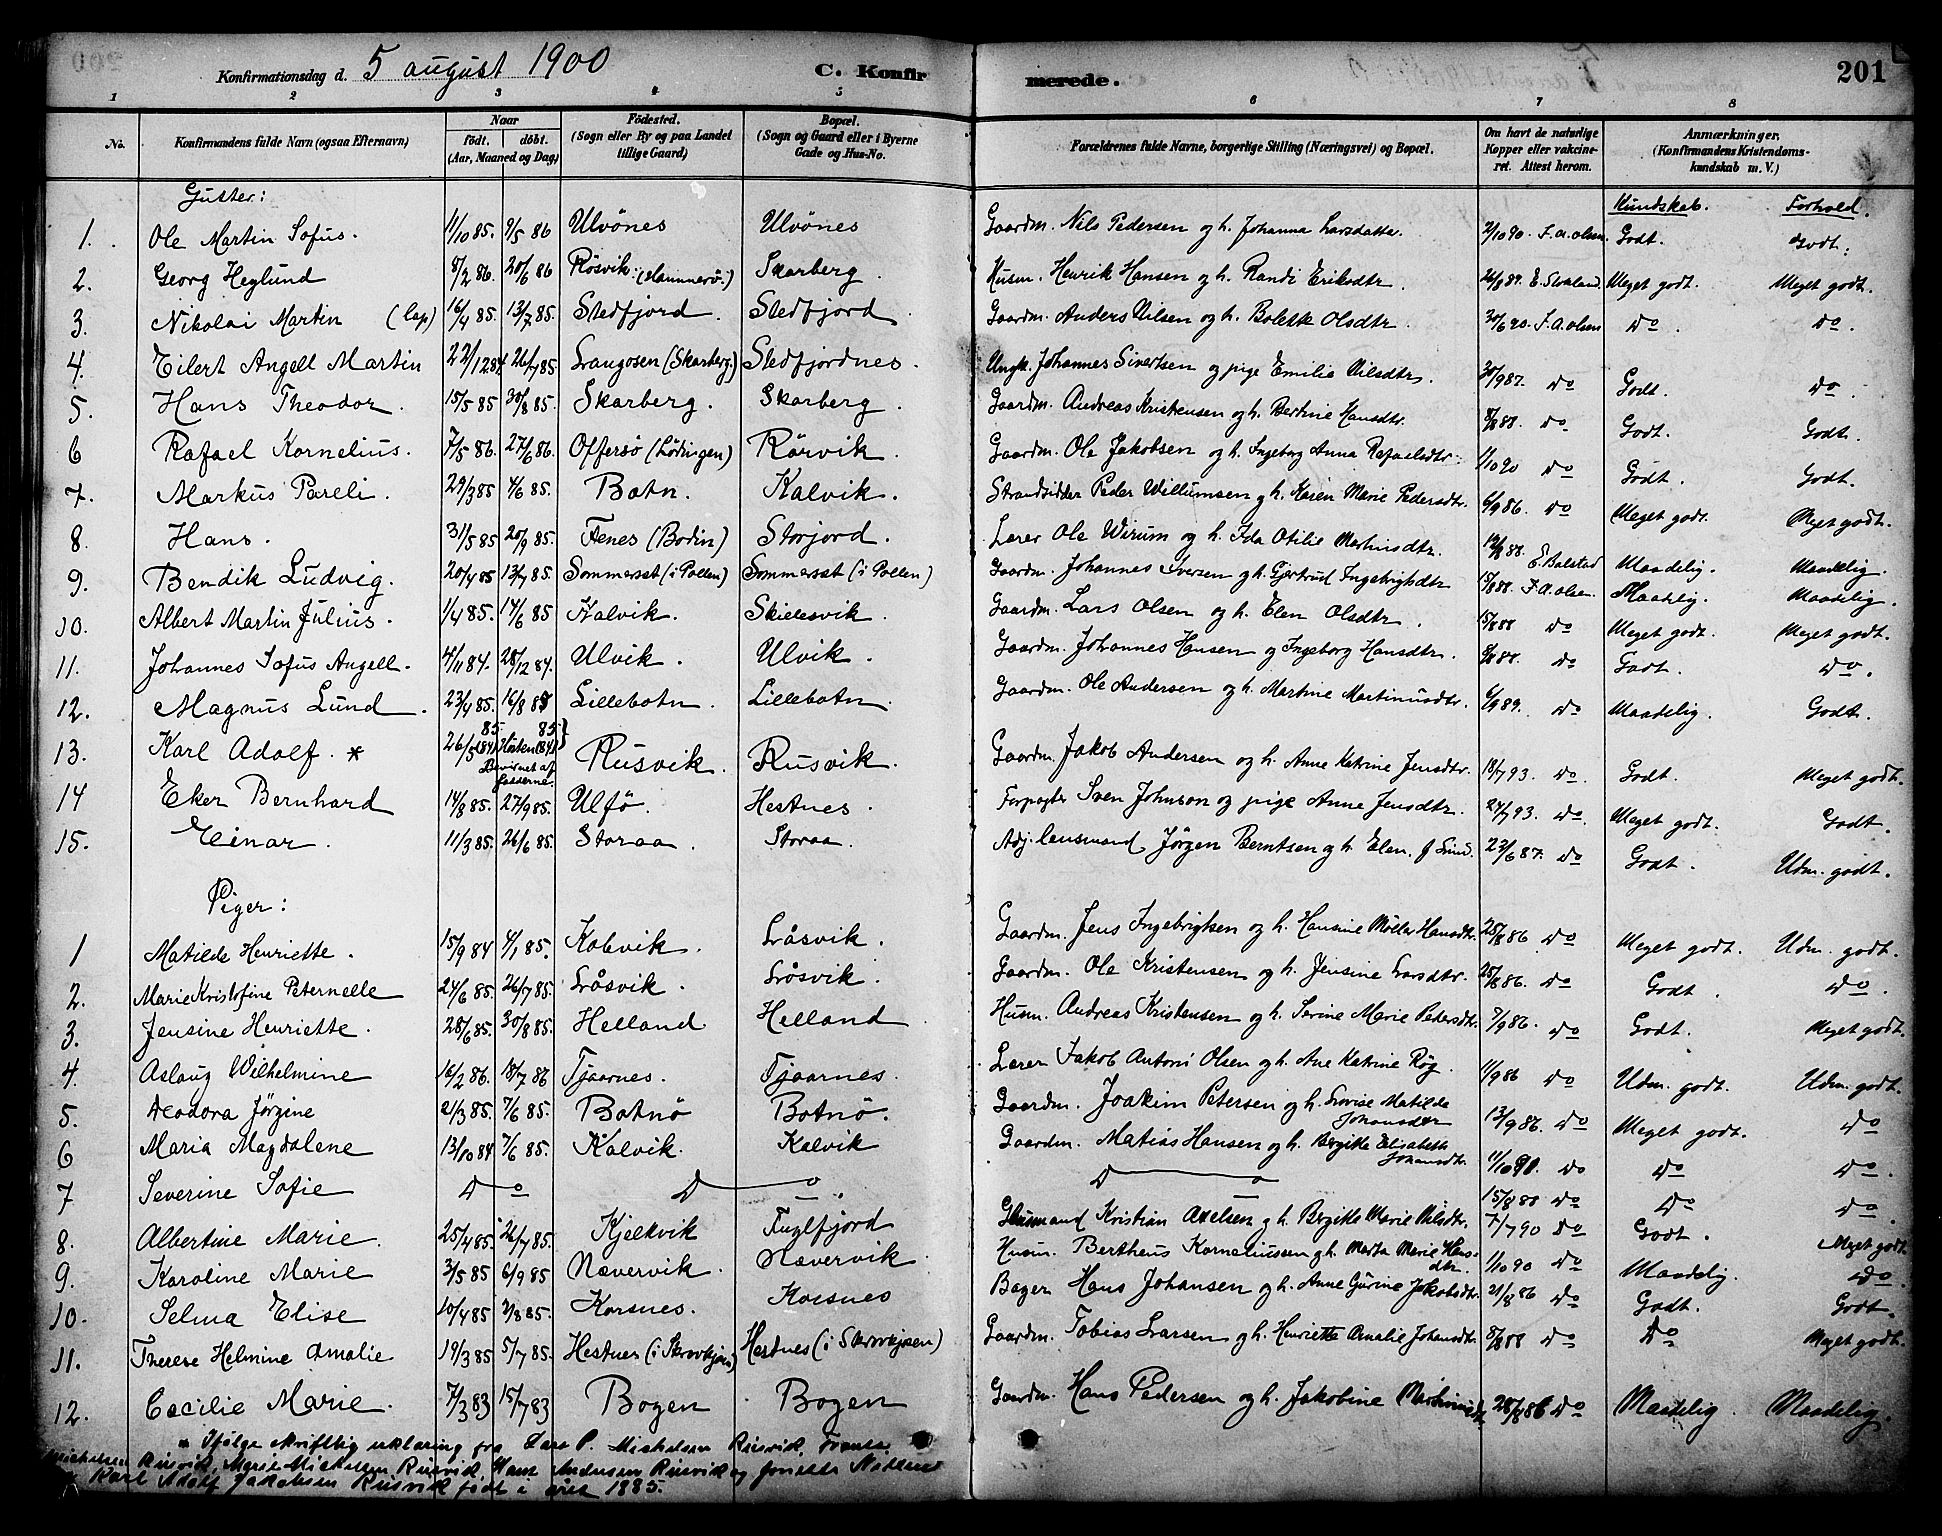 Konfirmationsdag d. 5 august 1900 C. Konfirmerede. 201
1 2 3 4 5 6 7 8
No. Konfirmandens fulde Navn (ogsaa Efternavn) Naar født. døbt. (Aar, Maaned og Dag) Fødested. (Sogn eller By og paa Landet tillige Gaard) Bopæl. (Sogn og Gaard eller i Byerne Gade og Hus-No. Forældrenes fulde Navne, borgerlige Stilling (Næringsvei) og Bopæl. Om havt de naturlige Kopper eller vakcineret. Attest herom. Anmærkninger. (Konfirmandens Kristendomskundskab m. V.)
Gutter: Kundskab. Forhold.
1. Ole Martin Sofus. 11/10 85. 9/5 86 Ulvönes Ulvönes Gaardm. Nils Pedersen og h. Johanna Larsdatter. 2/10 90. F. A. Olsen. Godt. Godt.
2. Georg Heglund 8/2 86. 20/6 86 Rösvik (Hammerö.) Skarberg Husm. Henrik Hansen og h. Randi Eriksdtr. 26/8 87. Meget godt. Meget godt.
3. Nikolai Martin (lap) 16/4 85. 13/7 85. Stedfjord. Stedfjord Gaardm. Anders Nilsen og h. Bolette Olsdtr. 30/6 90. F. A. Olsen Do Do.
4. Eilert Angell Martin 22/12 84. 26/7 85 Langosen (Skarberg.) Stedfjordnes. Ungk. Johannes Sivertsen og pige Emilie Nilsdtr. 30/9 87. Do Godt. Do.
5. Hans Theodor. 15/5 85 30/8 85. Skarberg. Skarberg Gaardm. Andreas Kristensen og h. Bertine Hansdtr. 8/8 88. Do Godt. Godt.
6 Rafael Kornelius. 7/5 86. 27/6 86. Offersö (Lödingen) Rörvik. Gaardm. Ole Jakobsen og h. Ingeborg Anna Rafaelsdtr. 1/10 90 Do Godt. Godt.
7. Markus Pareli. 29/3 85 4/6 85. Botn. Kalvik. Strandsidder Peder Willumsen og h. Karen Marie Pedersdtr. 6/9 86. Do Meget godt. Meget godt.
8. Hans. 31/5 85 20/9 85. Fenes (Bodin) Storjord. Lærer Ole Wirum og h. Ida Otilie Martinsdtr. 12/8 88. E. Balstad Maadelig. Maadelig.
9. Bendik Ludvig. 20/4 85 13/7 85. Sommerset (i Pollen) Sommerset (i Pollen) Gaardm. Johannes Iversen og h. Gjertrud Ingebrigtsdtr 15/8 88. F. A. Olsen Maadelig. Maadelig.
10. Albert Martin Julius. 1/4 85. 14/6 85 Kalvik. Skielesvik. Gaardm. Lars Olsen og h. Elen Olsdtr. 15/8 88 Do Meget godt. Meget godt.
11. Johannes Sofus Angell. 4/11 84. 28/12 84. Ulvik. Ulvik. Gaardm. Johannes Hansen og Ingeborg Hansdtr. 8/8 88. Do Godt. Do.
12. Magnus Lund. 23/4 85. 16/8 85 Lillebotn. Lillebotn. Gaardm. Ole Andersen og h. Martine Martinusdtr. 6/9 89. Do Maadelig. Godt.
13. Karl Adolf. * 26/5 85 (84) Hösten 85 (84) Bevidnet af fadderne. Rusvik. Rusvik. Gaardm. Jakob Andersen og h. Anne Katrine Jensdtr. 18/7 93. Do. Godt. Meget godt.
14 Eker Bernhard 14/8 85. 27/9 85. Ulfö. Hestnes. Forpagter Sven Johnson og pige Anne Jensdtr. 24/7 93. Do. Meget godt. Godt.
15. Einar. 11/3 85. 26/6 85. Storaa Storaa. Adj. lensmand Jörgen Berntsen og h. Elen. J. Lund. 23/6 87. Do Godt. Udm. godt.
Piger:
1 Matilde Henriette. 15/9 84 4/1 85. Kobvik. Låsvik. Gaardm. Jens Ingebrigtsen og h. Hansine Möller Hansdtr. 25/8 86 Do Meget godt. Udm. godt.
2. Marie Kristofine Peternelle 24/6 85. 26/7 85. Låsvik. Låsvik. Gaardm. Ole Kristensen og h. Jensine Larsdtr. 25/8 86. Do Godt. Do.
3. Jensine Henriette. 28/6 85. 30/8 85. Helland Helland Husm. Andreas Kristensen og h. Serine Marie Pedersdtr. 7/9 86. Do Godt. Meget godt.
4. Aslaug Wilhelmine 16/2 86. 18/7 86 Tjaarnes. Tjaarnes. Lærer Jakob Antoni Olsen og h. Ane Katrine Røg. 11/9 86 Do Udm. godt. Udm. godt.
5. Teodora Jörgine 21/3 85. 7/6 85. Botnö Botnö. Gaardm. Joakim Petersen og h. Lovise Matilde Johansdtr 13/9 86. Do Meget godt. Do
6 Maria Magdalene 13/10 84 7/6 85. Kalvik. Kalvik Gaardm. Matias Hansen og h. Bergitte Elisabeth Johansdtr. 11/10 90. Do Do Do.
7 Severine Sofie Do Do Do 15/8 88 Do Do Do.
8. Albertine Marie. 25/4 85. 26/7 85. Kjelkvik Fuglfjord Husmand Kristian Axelsen og h. Bergitte Marie Nilsdtr. 7/7 90 Do Godt. Meget godt
9. Karoline Marie 3/5 85 6/9 85 Nævervik. Nævervik Husm. Bertheus Korneliussen og h. Marta Marie Hansdtr. 1/10 90 Do Maadelig. Do.
10. Selma Elise 10/4 85 2/8 85. Korsnes. Korsnes Bager Hans Johansen og h. Anne Gurine Jakobsdtr. 21/8 86 Do Godt. Godt.
11. Therese Helmine Amalie 19/3 85 5/7 85. Hestnes (i Skrovkjosen) Hestnes (i Skrovkjosen) Gaardm. Tobias Larsen og h. Henriette Amalie Johansdtr. 8/8 88 Do Do Meget godt.
12. Cecilie Marie. 7/3 83 15/7 83 Bogen Bogen Gaardm. Hans Pedersen og h. Jakobine 28/8 86 Do Maadelig. Maadelig.
* Ifølge skriftlig erklæring fra Lars P. Mickelsen Rusvik,
Mickelsen Rusvik, Marie Mickelsen Rusvik, Hans Andersen Rusvik og
Karl Adolf Jakobsen Rusvik født i året 1885.